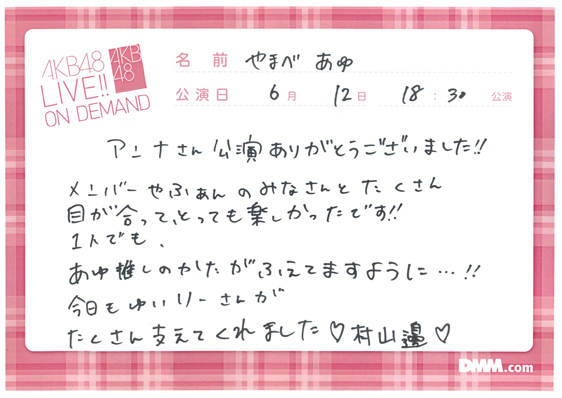 AKB48
LIVE!!
ON DEMAND
AKB
48
名 前 やまべ あゆ
公演日 6月 12日 18:30 公演
アンナさん公演ありがとうございました!!
メンバーやふぁんのみなさんとたくさん
目が合って、とっても楽しかったです!!
1人でも、
あゆ推しのかたがふえてますように…!!
今日もゆいりーさんが
たくさん支えてくれました♡村山邉♡
DMM.com